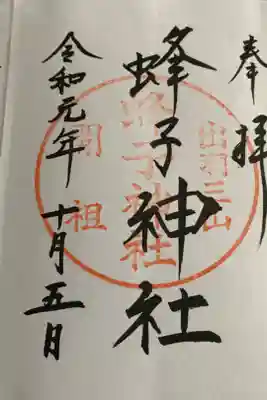 奉拝
蜂子神社
令和元年 十月五日
出羽三山
蜂子神社
開祖